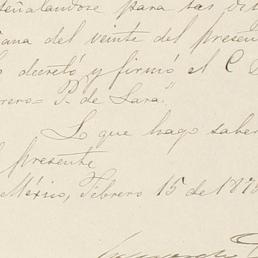 señalandose para las di
ana del veinte del present
decretó y firmó el C.
rero= P. de Lara"
Lo que hago saber
presente
México, Febrero 15 de 187